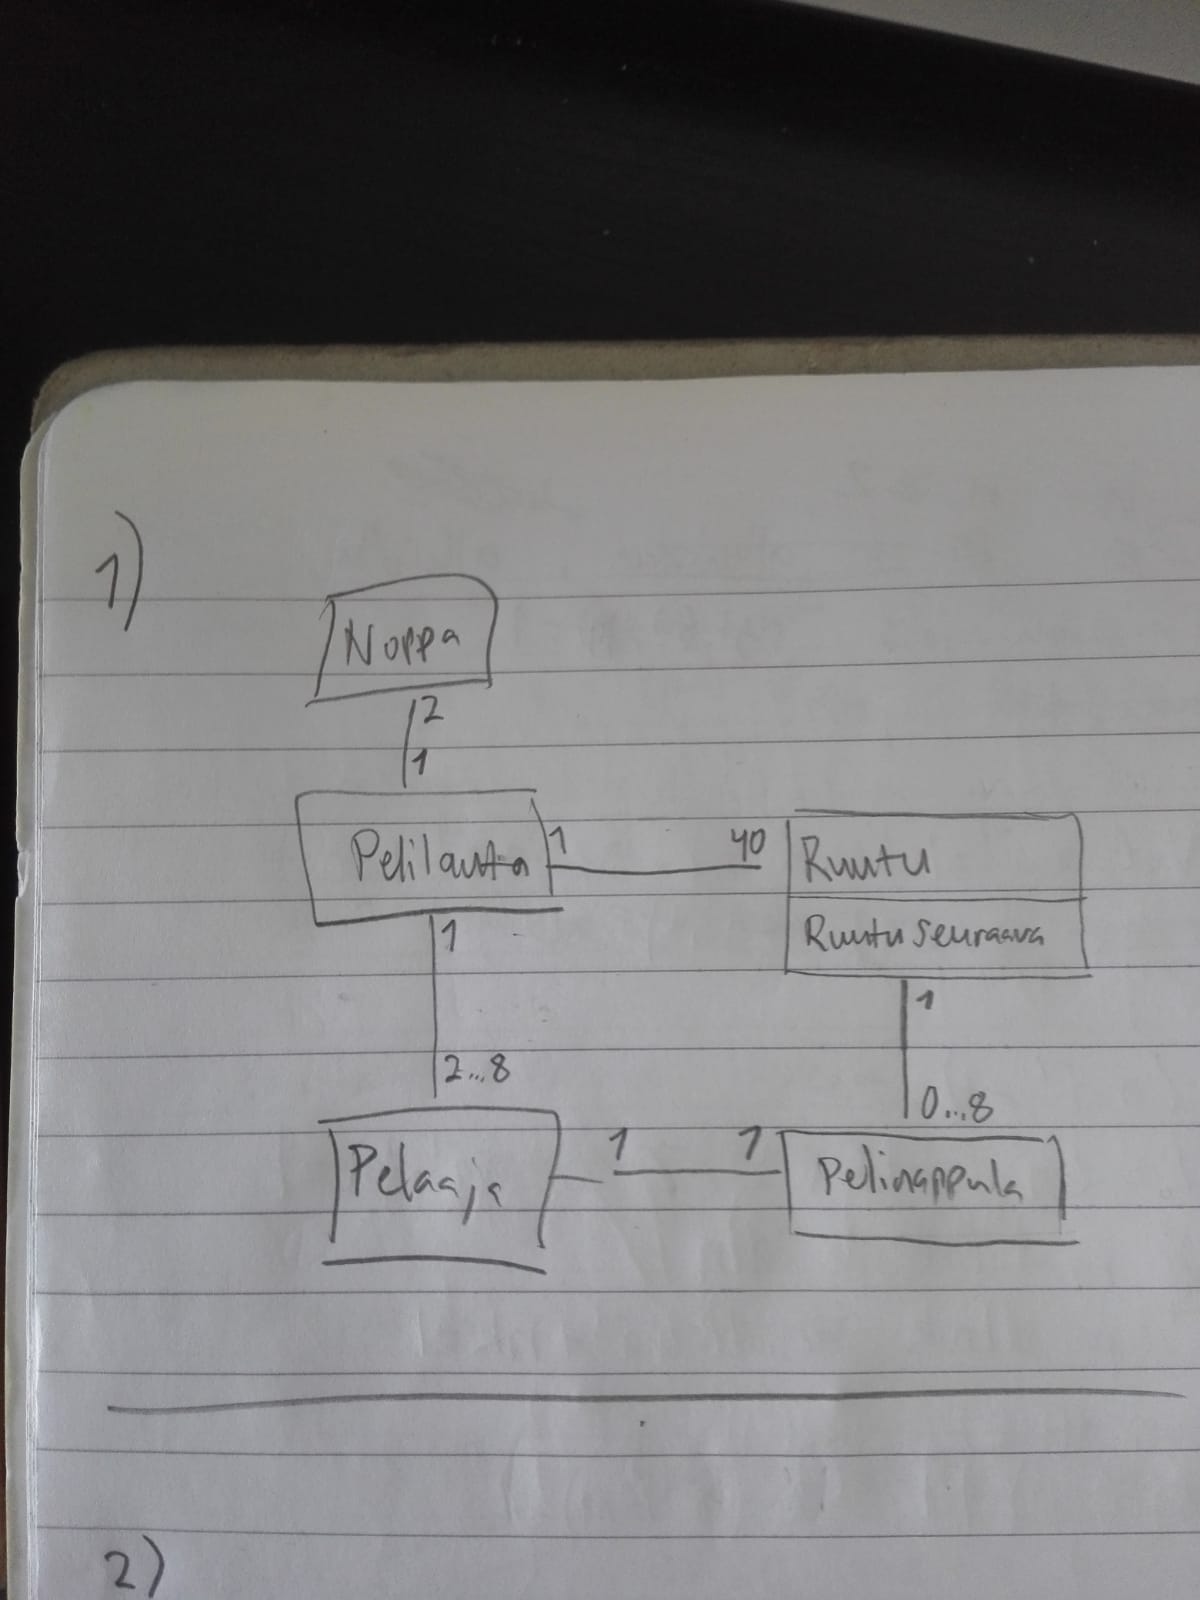 1)
Noppa
2
1
Pelilauta
1
40
Ruutu
Ruutu seuraava
1
2...8
1
0...8
Pelaaja
1
1
Pelinappula
2)